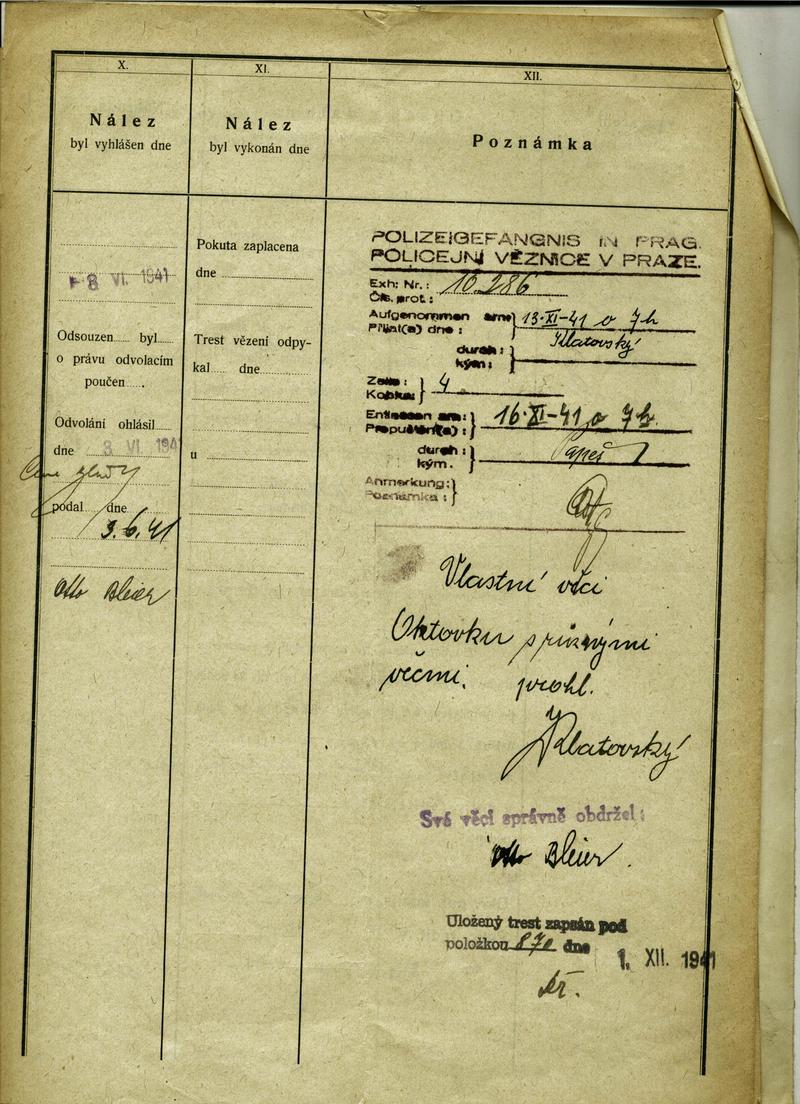 X.
Nález
byl vyhlášen dne
8 VI. 1941
Odsouzen byl
o právu odvolacím
poučen
Odvolání ohlásil
dne 3 VI 1941
podal dne
3.6.41
Otto Bleier
XI.
Nález
byl vykonán dne
Pokuta zaplacena
dne
Trest vězení odpy-
kal dne
u
XII.
Poznámka
POLIZEIGEFÄNGNIS IN PRAG.
POLICEJNÍ VĚZNICE V PRAZE.
Exh: Nr.: 10.286
Čís. prot.:
Aufgenommen am: 13·XI-41 o 7h
Přijat(a) dne:
durch: Klatovský
kým:
Zelle: 4
Kobka:
Entlassen am: 16·XI-41 o 7h.
Propuštěn(a):
durch: Papeš
kým.
Anmerkung:
Poznámka:
Vlastní věci
Aktovku s různými
věcmi. prohl.
Klatovský
Své věci správně obdržel:
Otto Bleier.
Uložený trest zapsán pod
položkou 870 dne
1. XII. 1941